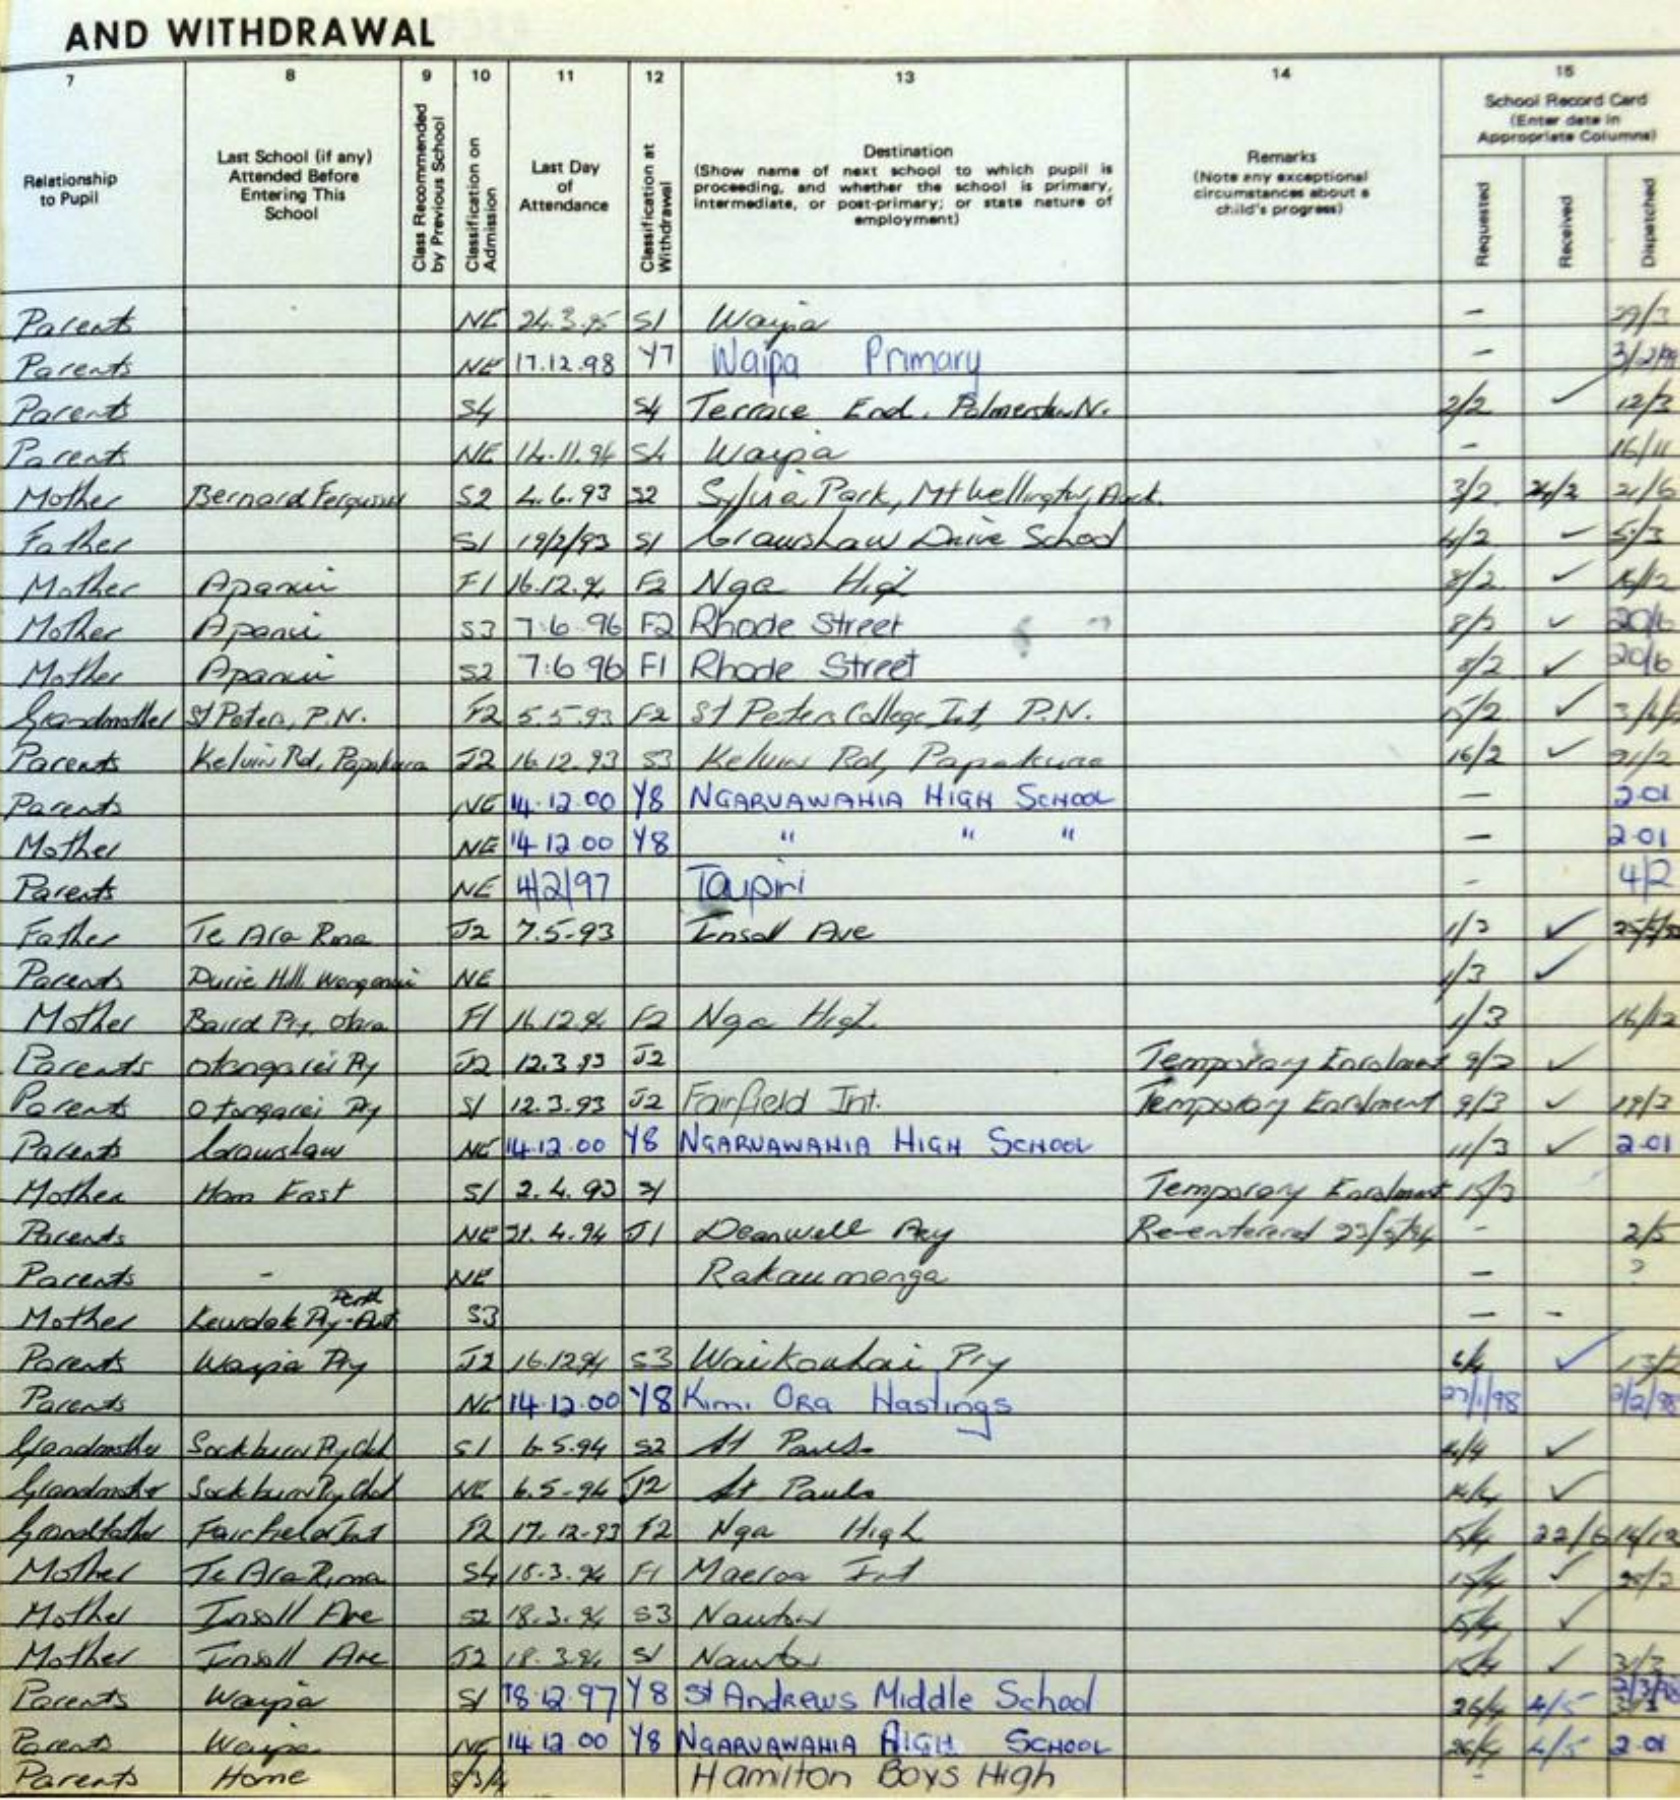 AND WITHDRAWAL
7 8 9 10 11 12 13 14 15
Relationship to Pupil
Last School (if any) Attended Before Entering This School
Class Recommended by Previous School
Classification on Admission
Last Day of Attendance
Classification at Withdrawal
Destination
(Show name of next school to which pupil is proceeding, and whether the school is primary, intermediate, or post-primary; or state nature of employment)
Remarks
(Note any exceptional circumstances about a child's progress)
School Record Card
(Enter date in Appropriate Columns)
Requested Received Dispatched
Parents NE 24.3.95 S1 Waipa - 29/3
Parents NE 17.12.98 Y7 Waipa Primary - 3/2/99
Parents S4 S4 Terrace End. Palmerston N. 2/2 ✓ 12/3
Parents NE 14.11.94 S4 Waipa - 16/11
Mother Bernard Fergusson S2 4.6.93 S2 Sylvia Park, Mt Wellington, Auck. 3/2 21/6
Father S1 19/2/93 S1 Crawshaw Drive School 4/2 ✓ 5/3
Mother Apanui F1 16.12.94 F2 Nga High 8/2 ✓ 16/12
Mother Apanui S3 7.6.96 F2 Rhode Street 8/2 ✓ 20/6
Mother Apanui S2 7.6.96 F1 Rhode Street 8/2 ✓ 20/6
Grandmother St Peters, P.N. F2 5.5.93 F2 St Peters College Int, P.N. ✓
Parents Kelvin Rd, Papakura J2 16.12.93 S3 Kelvin Rd, Papakura 16/2 ✓
Parents NE 14.12.00 Y8 NGARUAWAHIA HIGH SCHOOL - 2.01
Mother NE 14.12.00 Y8 " " " - 2.01
Parents NE 4/2/97 Taupiri - 4/2
Father Te Ara Rima J2 7.5.93 Insoll Ave 1/3 ✓
Parents Durie Hill Wanganui NE 1/3 ✓
Mother Baird Pry, Otara F1 16.12.94 F2 Nga High 1/3 16/12
Parents Otangarei Pry J2 12.3.93 J2 Temporary Enrolment 9/3 ✓
Parents Otangarei Pry S1 12.3.93 J2 Fairfield Int. Temporary Enrolment 9/3 ✓ 19/3
Parents Crawshaw NE 14.12.00 Y8 NGARUAWAHIA HIGH SCHOOL 11/3 ✓ 2.01
Mother Ham East S1 2.4.93 S1 Temporary Enrolment 15/3
Parents NE 4.94 J1 Deanwell Pry Re-entered 23/5/94 - 2/5
Parents - NE Rakaumanga - ?
Mother Kewdale Pry-Aust Perth S3 - -
Parents Waipa Pry J2 16.12.94 S3 Waikowhai Pry 6/4 ✓
Parents NE 14.12.00 Y8 Kimi Ora Hastings 27/1/98 2/2/98
Grandmother Sockburn Pry Chch S1 6.5.94 S2 St Pauls ✓
Grandmother Sockburn Pry Chch NE 6.5.94 J2 St Pauls ✓
Grandfather Fairfield Int F2 17.12.93 F2 Nga High 15/4 22/6 14/12
Mother Te Ara Rima S4 18.3.94 F1 Maeroa Int 15/4 ✓
Mother Insoll Ave S2 18.3.94 S3 Nawton 15/4 ✓
Mother Insoll Ave J2 18.3.94 S1 Nawton 15/4 ✓
Parents Waipa S1 18.12.97 Y8 St Andrews Middle School 26/4 4/5
Parents Waipa NE 14.12.00 Y8 NGARUAWAHIA HIGH SCHOOL 26/4 4/5 2.01
Parents Home Hamilton Boys High -